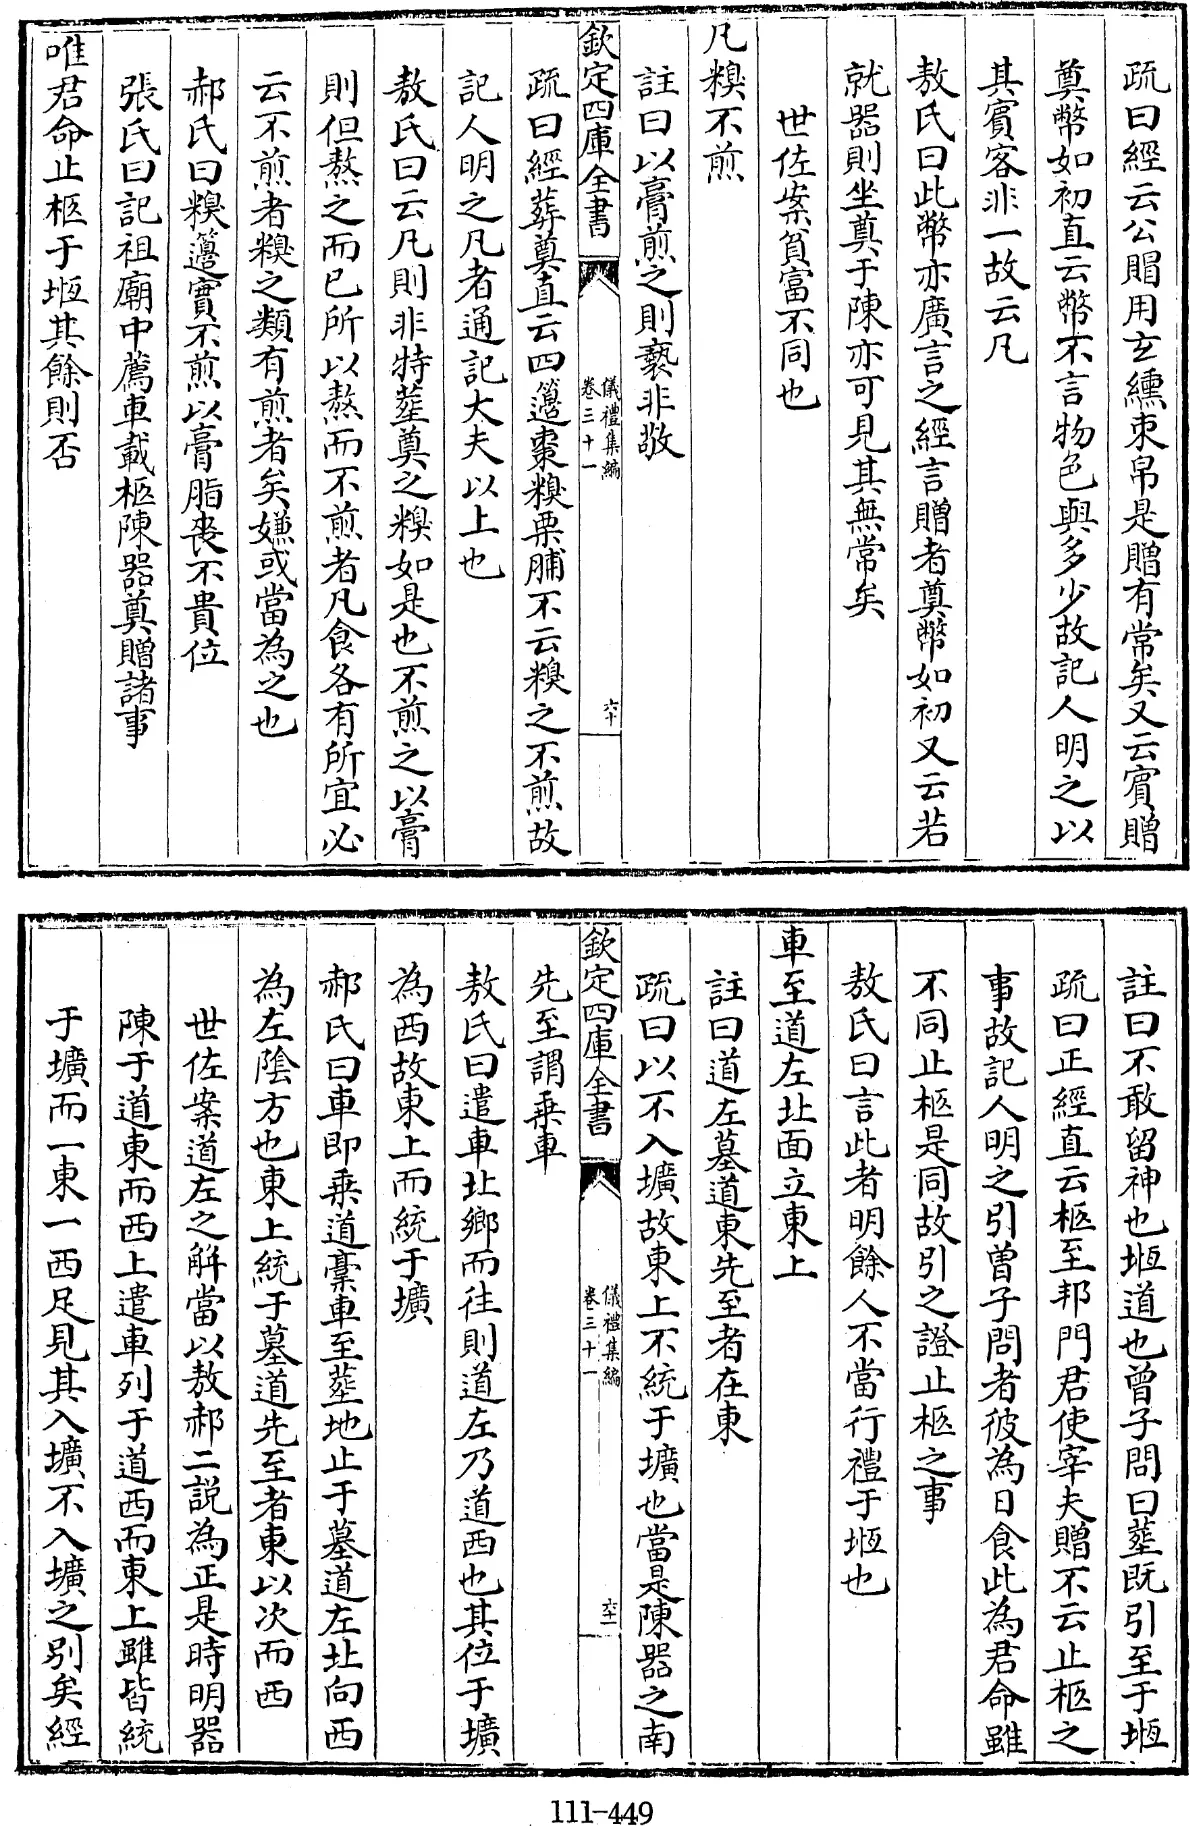 疏曰經云公賵用玄纁束帛是贈有常矣又云賔贈
奠幣如初直云幣不言物色與多少故記人明之以
其賔客非一故云凡
敖氏曰此幣亦廣言之經言贈者奠幣如初又云若
就器則坐奠于陳亦可見其無常矣
世佐案貧富不同也
凡糗不煎
註曰以膏煎之則褻非敬
欽定四庫全書
儀禮集編
卷三十一
六十
疏曰經葬奠直云四籩棗糗栗脯不云糗之不煎故
記人明之凡者通記大夫以上也
敖氏曰云凡則非特葬奠之糗如是也不煎之以膏
則但熬之而已所以熬而不煎者凡食各有所宜必
云不煎者糗之類有煎者矣嫌或當為之也
郝氏曰糗籩實不煎以膏脂喪不貴位
張氏曰記祖廟中薦車載柩陳器奠贈諸事
唯君命止柩于堩其餘則否
註曰不敢留神也堩道也曾子問曰葬既引至于堩
疏曰正經直云柩至邦門君使宰夫贈不云止柩之
事故記人明之引曾子問者彼為日食此為君命雖
不同止柩是同故引之證止柩之事
敖氏曰言此者明餘人不當行禮于堩也
車至道左北面立東上
註曰道左墓道東先至者在東
疏曰以不入壙故東上不統于壙也當是陳器之南
欽定四庫全書
儀禮集編
卷三十一
六十一
先至謂乗車
敖氏曰遣車北鄉而往則道左乃道西也其位于壙
為西故東上而統于壙
郝氏曰車即乗道稾車至葬地止于墓道左北向西
為左陰方也東上統于墓道先至者東以次而西
世佐案道左之解當以敖郝二説為正是時明器
陳于道東而西上遣車列于道西而東上雖皆統
于壙而一東一西足見其入壙不入壙之别矣經
111-449